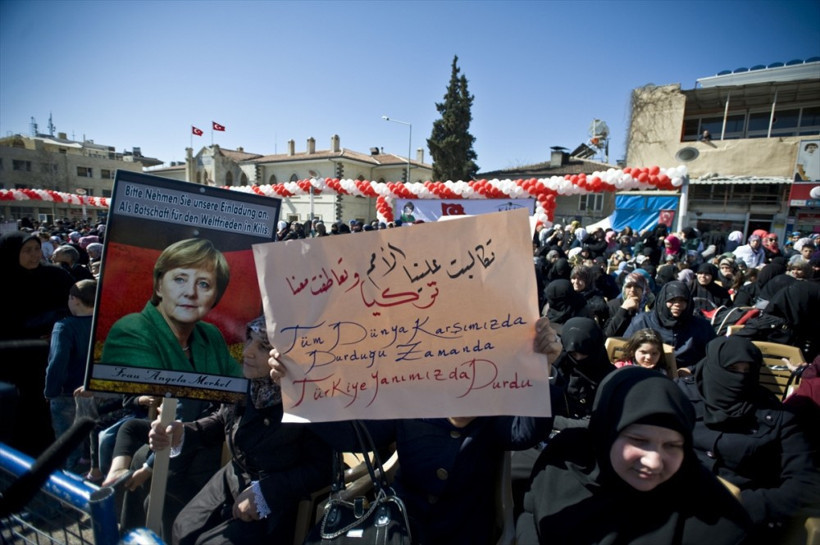 Bitte Nehmen Sie unsere Einladung an
Als Botschaft für den Weltfrieden in Kilis
Frau Angela Merkel
تكالبت علينا الأمم
وتعاطفت معنا
تركيا
Tüm Dünya Karşımızda
Durduğu Zamanda
Türkiye Yanımızda Durdu